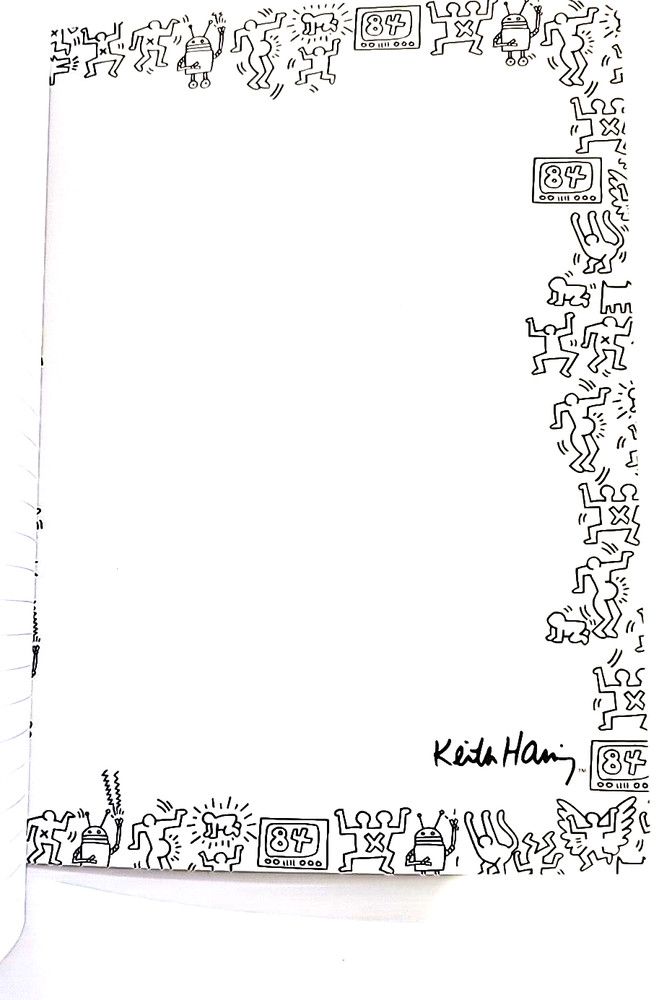 84
84
Keith Haring ™
84
84